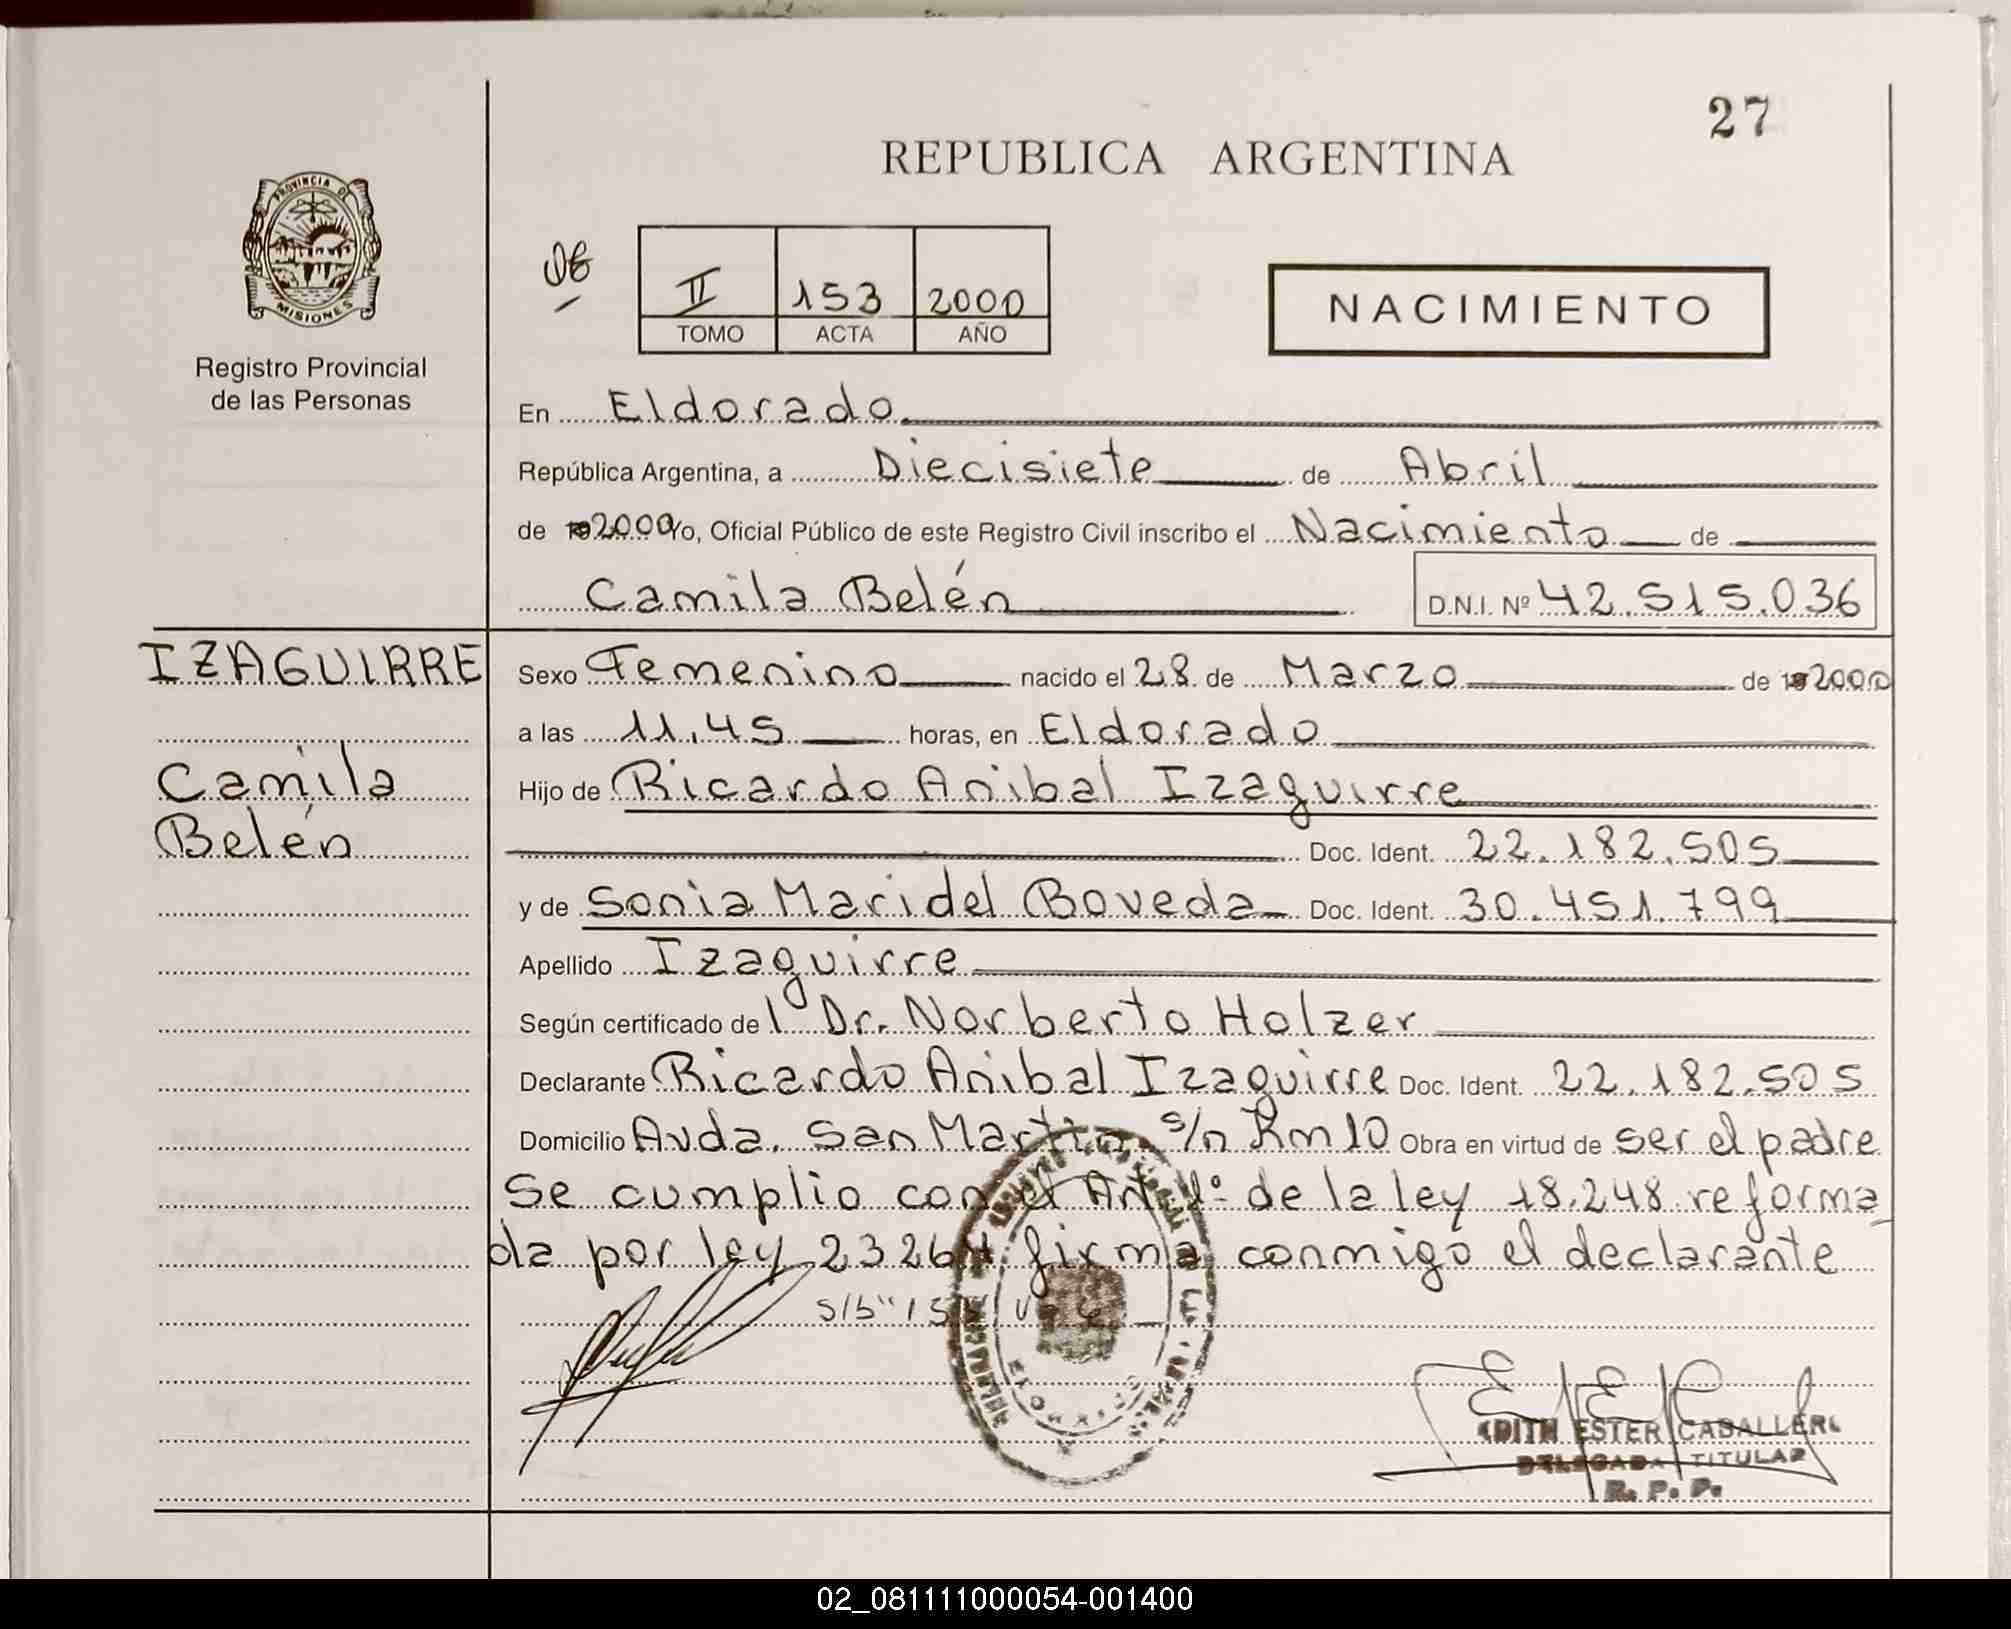 27
REPUBLICA ARGENTINA
PROVINCIA DE
MISIONES
Registro Provincial
de las Personas
II 153 2000
TOMO ACTA AÑO
NACIMIENTO
En Eldorado
República Argentina, a Diecisiete de Abril
de 192000 Yo, Oficial Público de este Registro Civil inscribo el Nacimiento de
Camila Belén D.N.I. Nº 42.515.036
IZAGUIRRE
Camila
Belén
Sexo Femenino nacido el 28 de Marzo de 192000
a las 11,45 horas, en Eldorado
Hijo de Ricardo Anibal Izaguirre
Doc. Ident. 22.182.505
y de Sonia Maridel Boveda Doc. Ident. 30.451.799
Apellido Izaguirre
Según certificado del Dr. Norberto Holzer
Declarante Ricardo Anibal Izaguirre Doc. Ident. 22.182.505
Domicilio Avda. San Martin s/n Km 10 Obra en virtud de ser el padre
Se cumplio con el Art 1º de la ley 18.248 reforma
da por ley 23264 firma conmigo el declarante
EDITH ESTER CABALLERO
DELEGADA TITULAR
R. P. P.
02_081111000054-001400